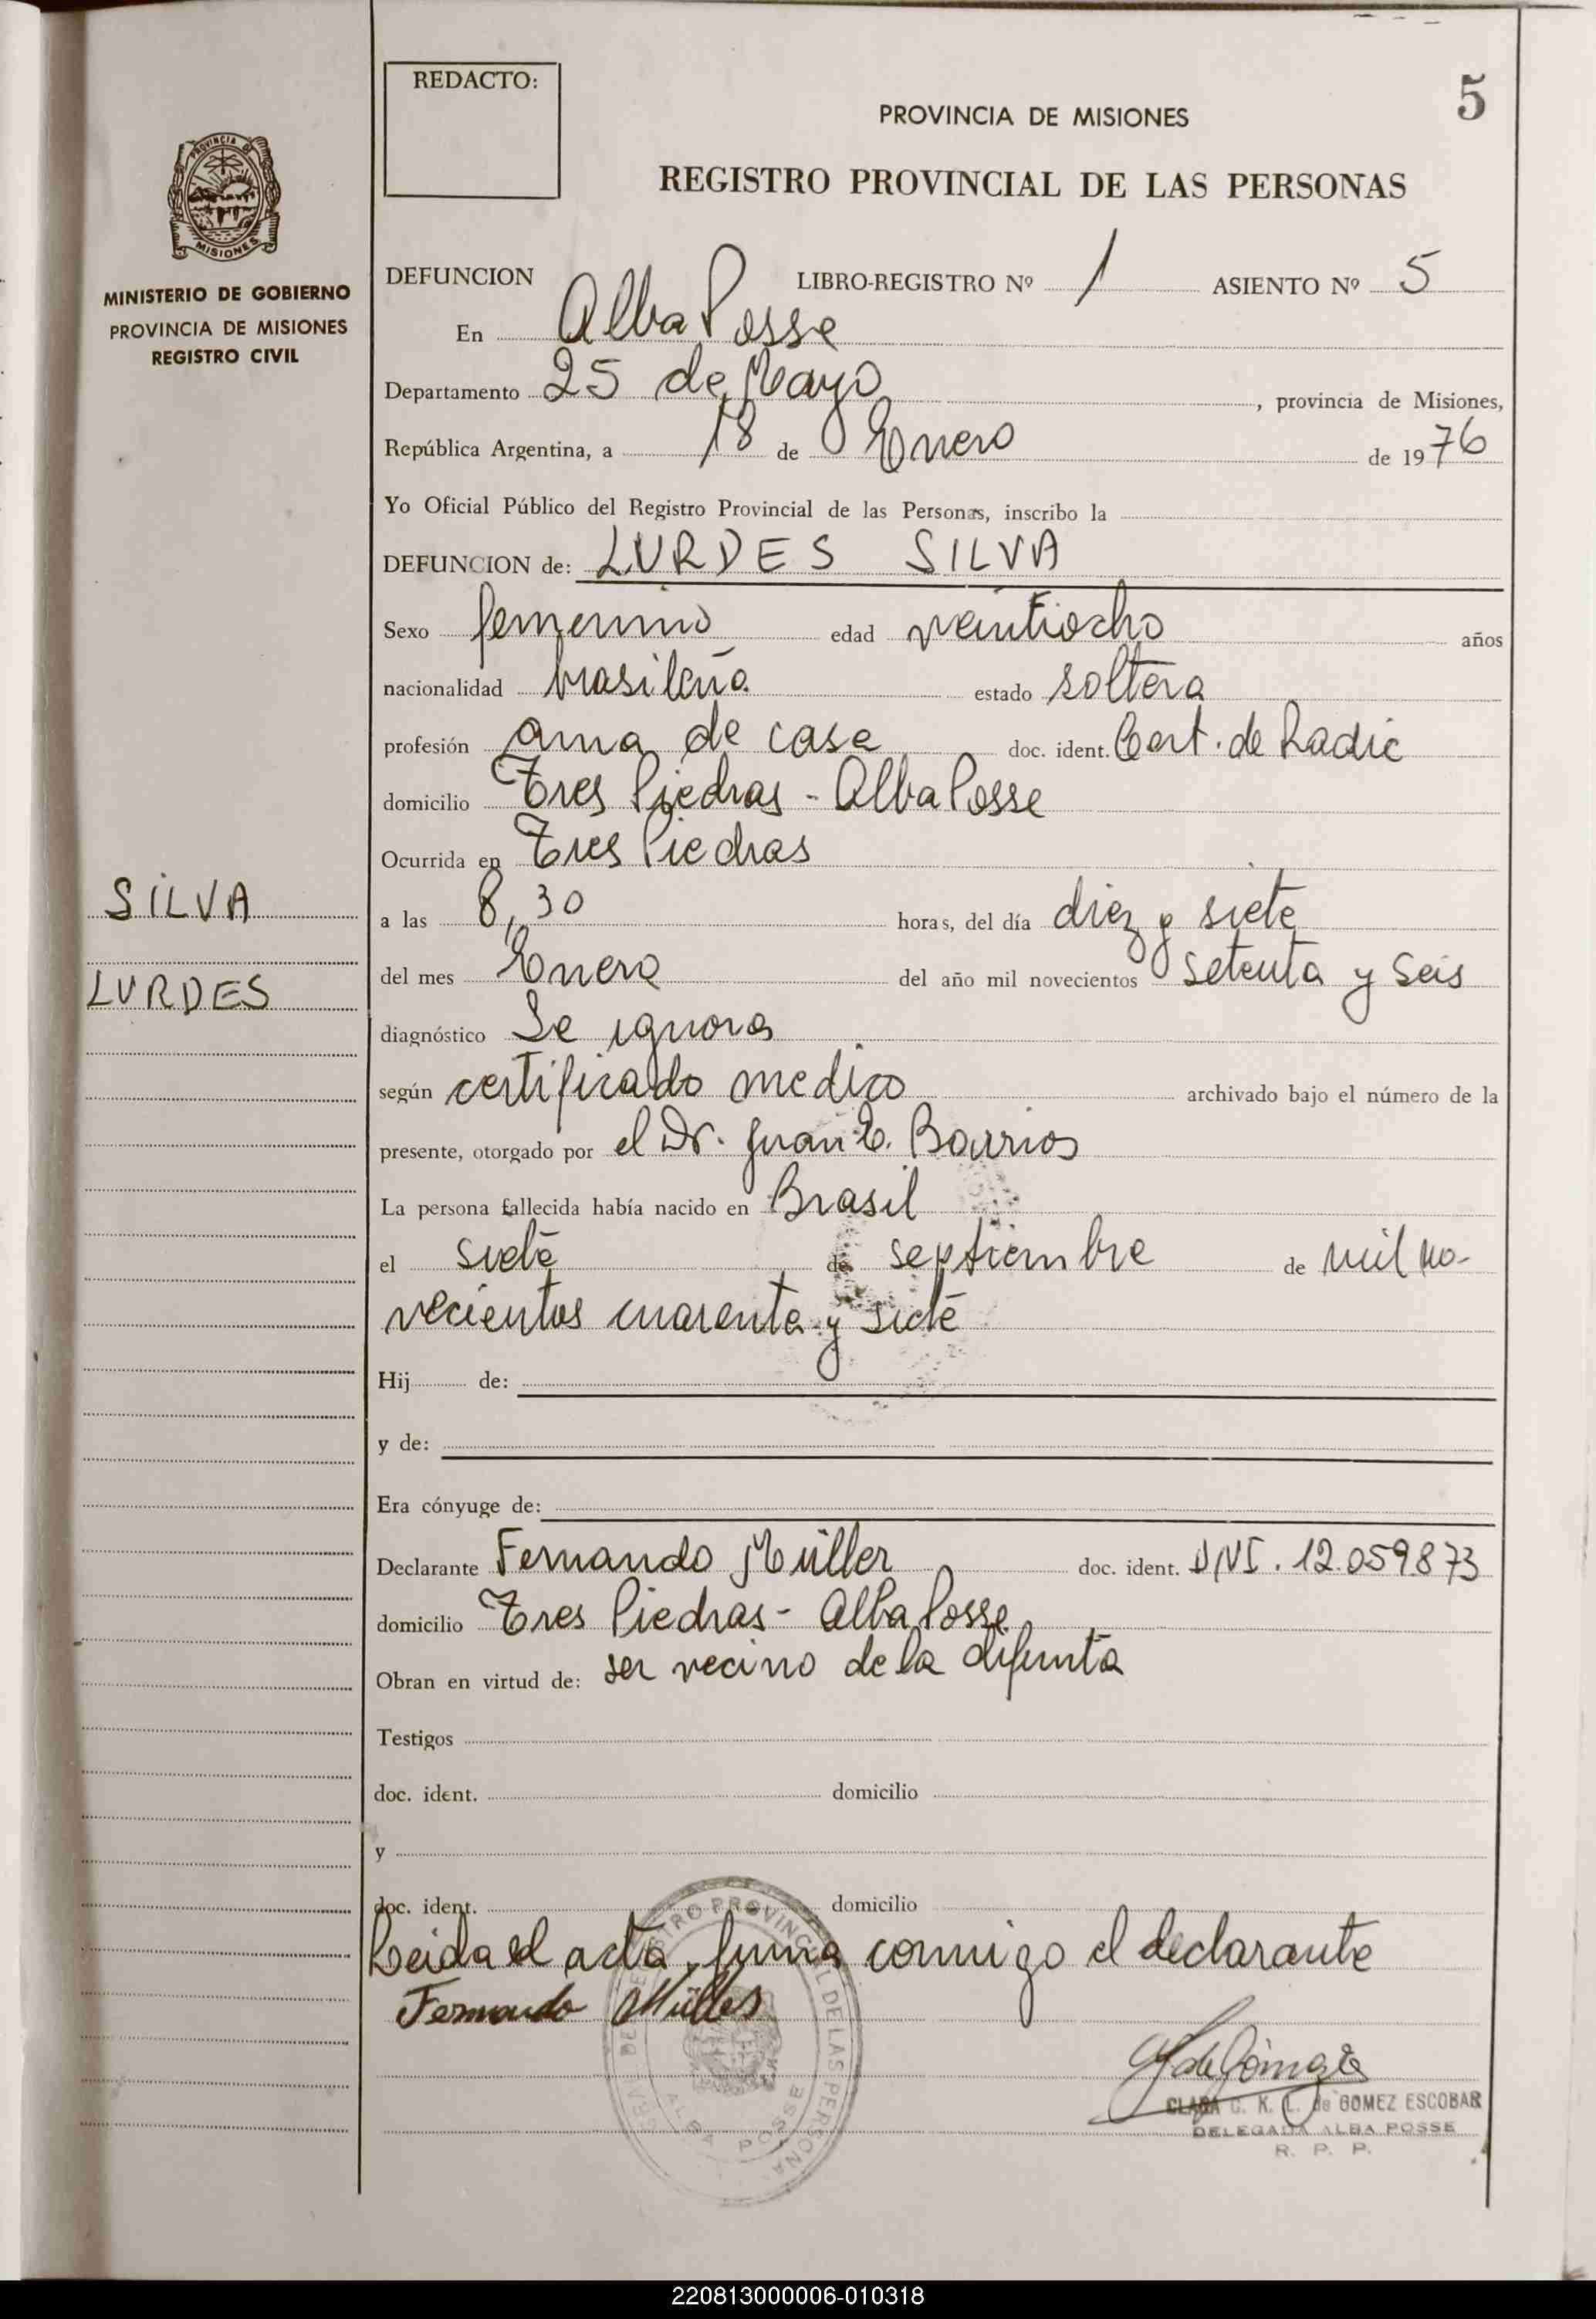 REDACTO:
5
PROVINCIA DE MISIONES
REGISTRO PROVINCIAL DE LAS PERSONAS
PROVINCIA DE
MISIONES
MINISTERIO DE GOBIERNO
PROVINCIA DE MISIONES
REGISTRO CIVIL
DEFUNCION LIBRO-REGISTRO Nº 1 ASIENTO Nº 5
En Alba Posse
Departamento 25 de Mayo, provincia de Misiones,
República Argentina, a 18 de Enero de 1976
Yo Oficial Público del Registro Provincial de las Personas, inscribo la
DEFUNCION de: LURDES SILVA
Sexo femenino edad veintiocho años
nacionalidad brasileña estado soltera
profesión ama de casa doc. ident. Cert. de Radic
domicilio Tres Piedras - Alba Posse
Ocurrida en Tres Piedras
SILVA
a las 8,30 horas, del día diez y siete
LURDES
del mes Enero del año mil novecientos setenta y seis
diagnóstico Se ignora
según certificado medico archivado bajo el número de la
presente, otorgado por el Dr. Juan E. Barrios
La persona fallecida había nacido en Brasil
el siete de septiembre de mil no-
vecientos cuarenta y siete
Hij de:
y de:
Era cónyuge de:
Declarante Fernando Müller doc. ident. DNI. 12.059873
domicilio Tres Piedras - Alba Posse
Obran en virtud de: ser vecino de la difunta
Testigos
doc. ident. domicilio
y
doc. ident. domicilio
Leida el acta, firma conmigo el declarante
Fernando Müller
ALBA POSSE
CLARA C. K. L. de GOMEZ ESCOBAR
DELEGADA ALBA POSSE
R. P. P.
220813000006-010318